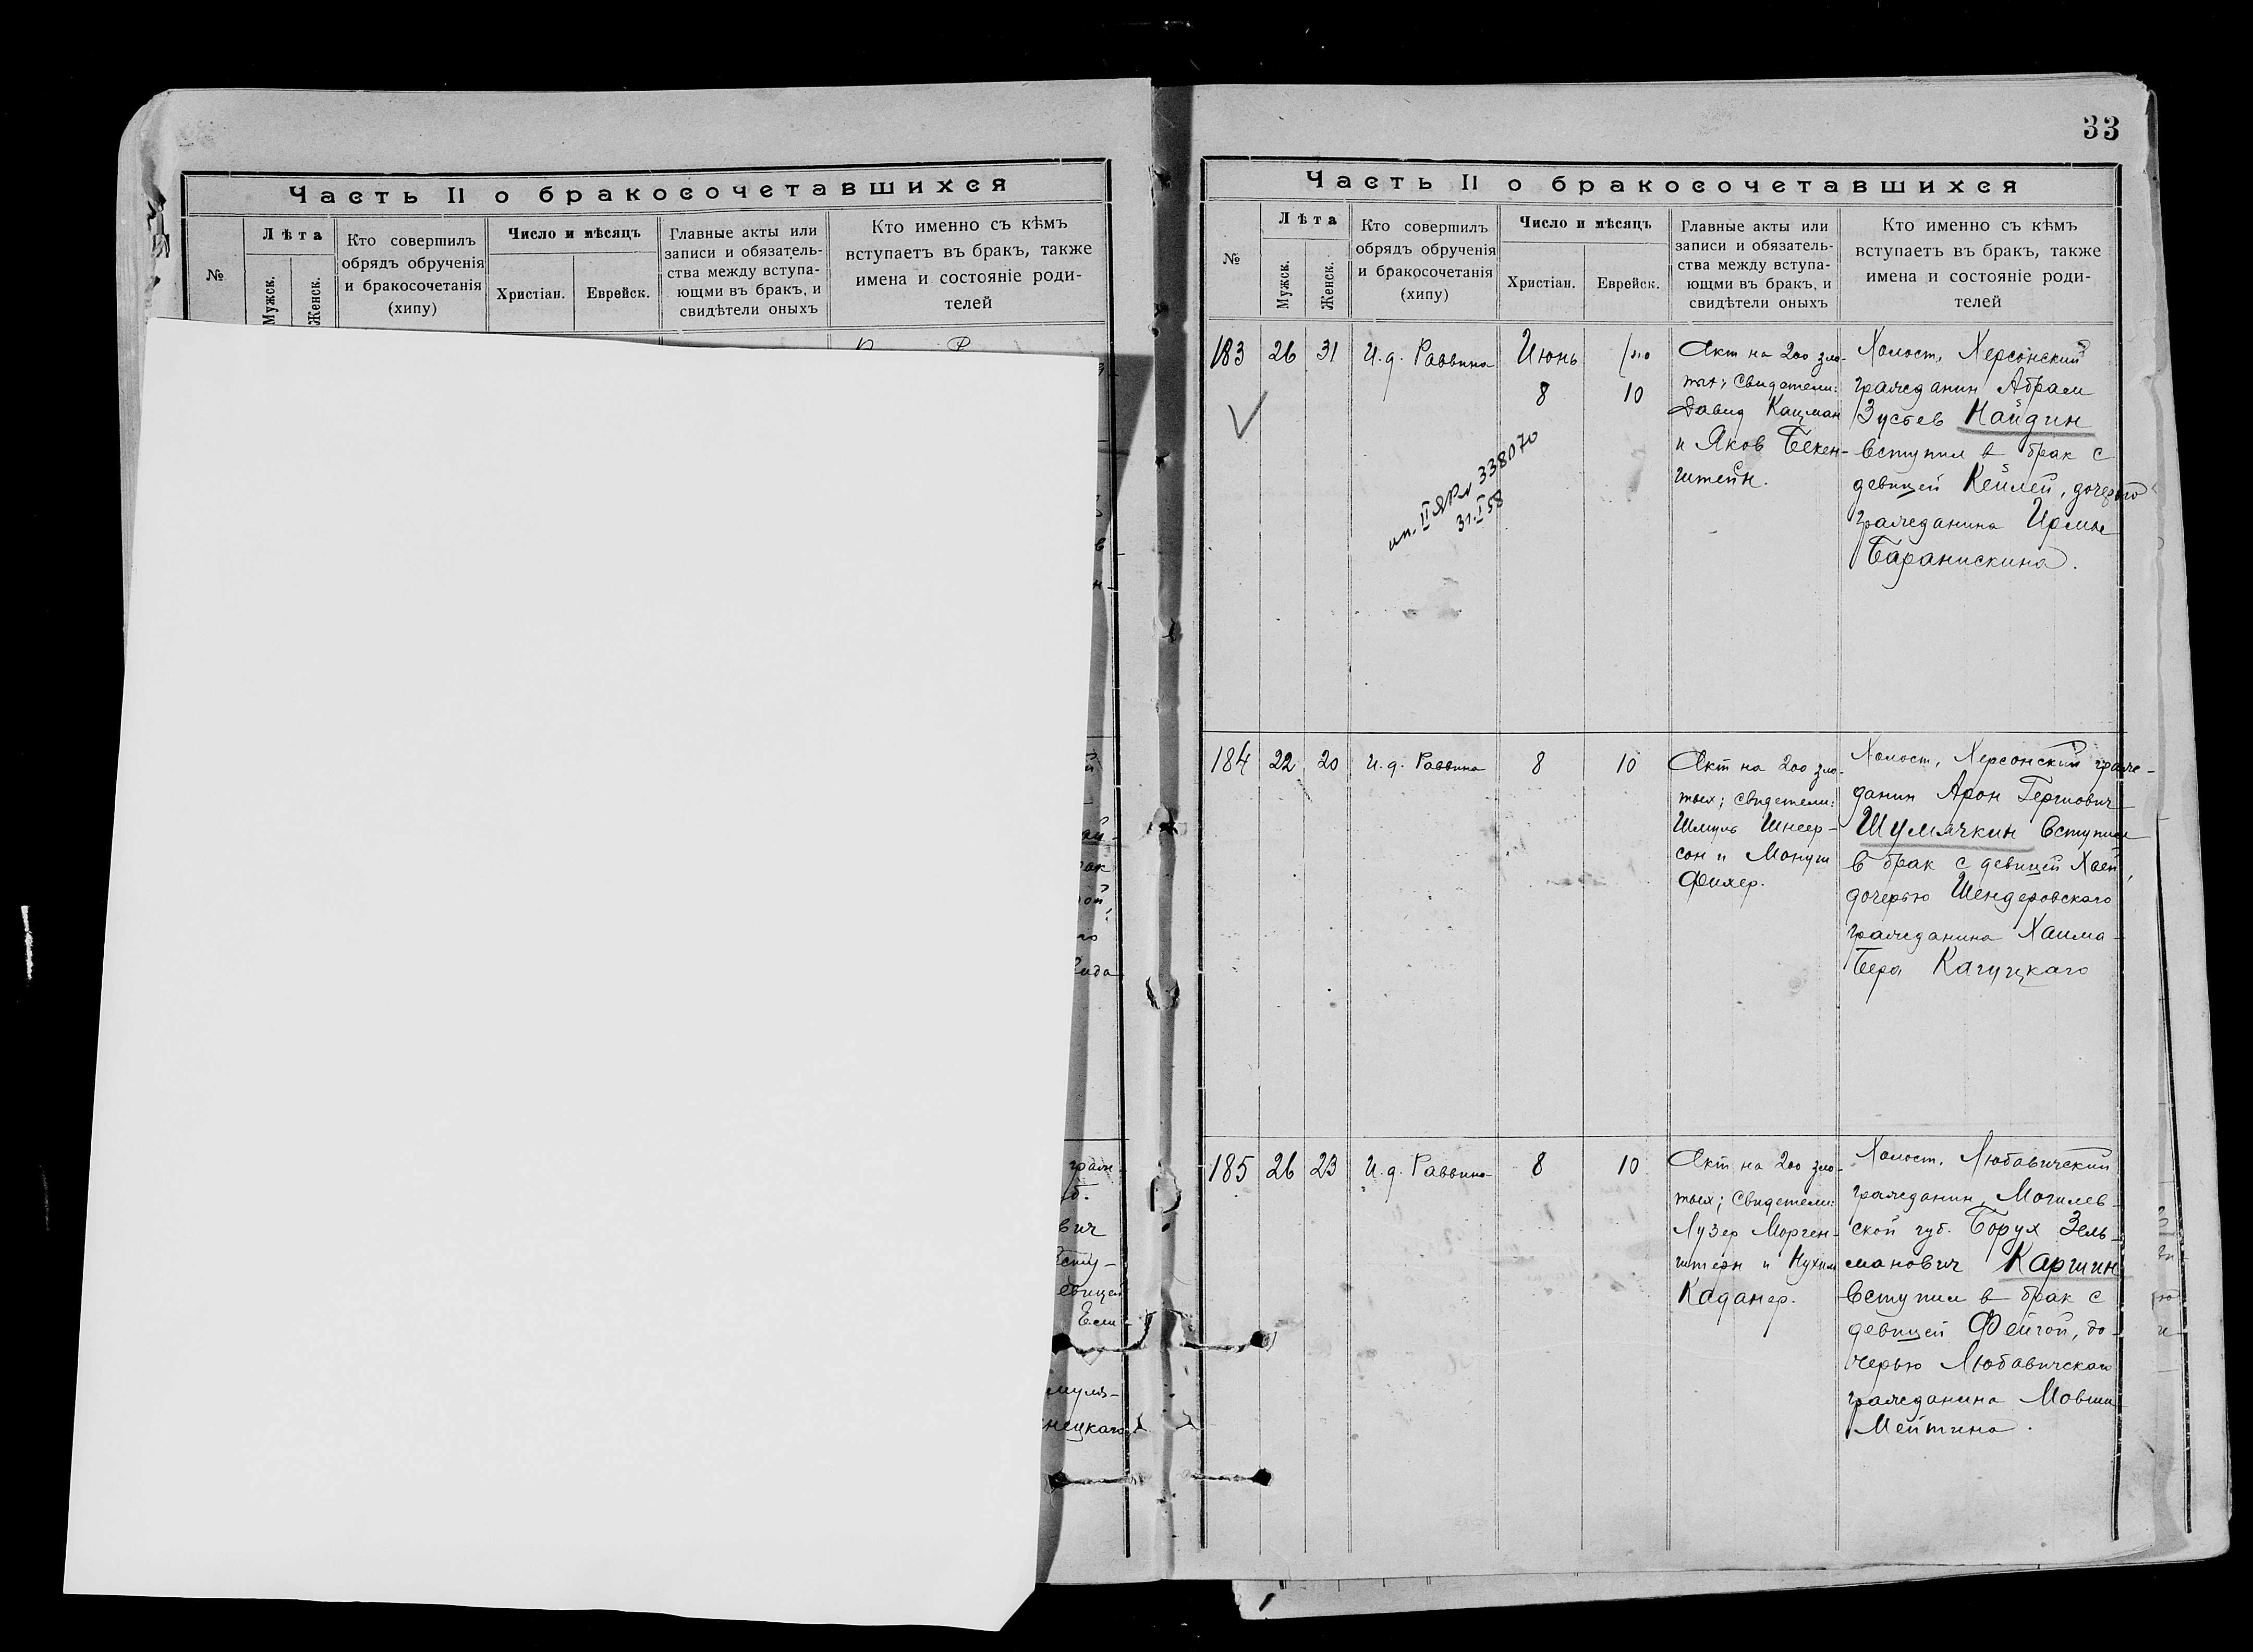 Часть II о бракосочетавшихся
№
Лѣта
Мужск.
Женск.
Кто совершилъ
обрядъ обрученія
и бракосочетанія
(хипу)
Число и мѣсяцъ
Христіан.
Еврейск.
Главные акты или
записи и обязатель-
ства между вступа-
ющми въ бракъ, и
свидѣтели оныхъ
Кто именно съ кѣмъ
вступаетъ въ бракъ, также
имена и состояніе роди-
телей
ак
вич
нецкаго
33
Часть II о бракосочетавшихся
№
Лѣта
Мужск.
Женск.
Кто совершилъ
обрядъ обрученія
и бракосочетанія
(хипу)
Число и мѣсяцъ
Христіан.
Еврейск.
Главные акты или
записи и обязатель-
ства между вступа-
ющми въ бракъ, и
свидѣтели оныхъ
Кто именно съ кѣмъ
вступаетъ въ бракъ, также
имена и состояніе роди-
телей
183
26
31
И.д. Раввина
Июнь
8
10
338070
31.I 58
Акт на 200 зло-
тых; свидетели:
Давид Кацман
и Яков Бекен-
штейн.
Холост, Херсонский
гражданин Абрам
Зусев Найдин
вступил в брак с
девицей Кейлей, дочерью
гражданина Ирмы
Баранискина.
184
22
20
И.д. Раввина
8
10
Акт на 200 зло-
тых; свидетели:
Шмуль Шнеер-
сон и Монуш
Фихер.
Холост, Херсонский граж-
данин Арон Гершович
Шумячкин вступил
в брак с девицей Хаей,
дочерью Шендеровского
гражданина Хаима-
Бера Кагуцкаго
185
26
23
И.д. Раввина
8
10
Акт на 200 зло-
тых; свидетели:
Лузер Морген-
штерн и Нухим
Каданер.
Холост, Любавичский
гражданин, Могилев-
ской губ. Борух Зель-
манович Каршин
вступил в брак с
девицей Фейгой, до-
черью Любавичскаго
гражданина Мовши
Мейтина.